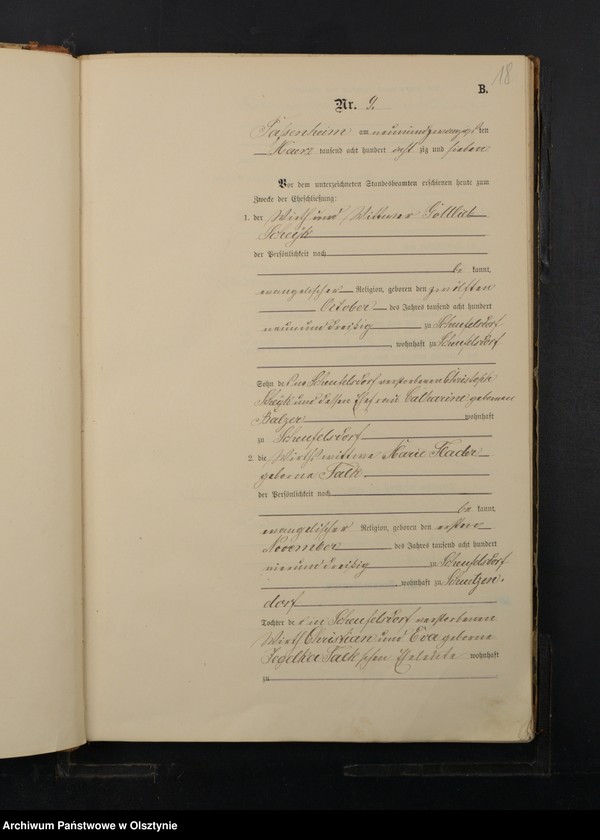 18
B.
Nr. 9.
am neunundzwanzigsten
Maerz tausend acht hundert acht zig und sieben
Vor dem unterzeichneten Standesbeamten erschienen heute zum
Zwecke der Eheschließung:
1. der Wirth und Wittwer Gottlieb
der Persönlichkeit nach
be kannt,
evangelischer Religion, geboren den zwölften
October des Jahres tausend acht hundert
neun und dreißig zu Scheufelsdorf
, wohnhaft zu Scheufelsdorf
Sohn des zu Scheufelsdorf verstorbenen Christoph
und dessen Ehefrau Catharine geborenen
Balzer wohnhaft
zu Scheufelsdorf
2. die Wirthswittwe Marie
geborne Falk
der Persönlichkeit nach
be kannt,
evangelischer Religion, geboren den ersten
November des Jahres tausend acht hundert
vierund dreißig zu Scheufelsdorf
, wohnhaft zu Schuetzen-
dorf
Tochter der in Scheufelsdorf verstorbenen
Wirth Christian und Eva geborne
Falk schen Eheleute wohnhaft
zu
Archiwum Państwowe w Olsztynie